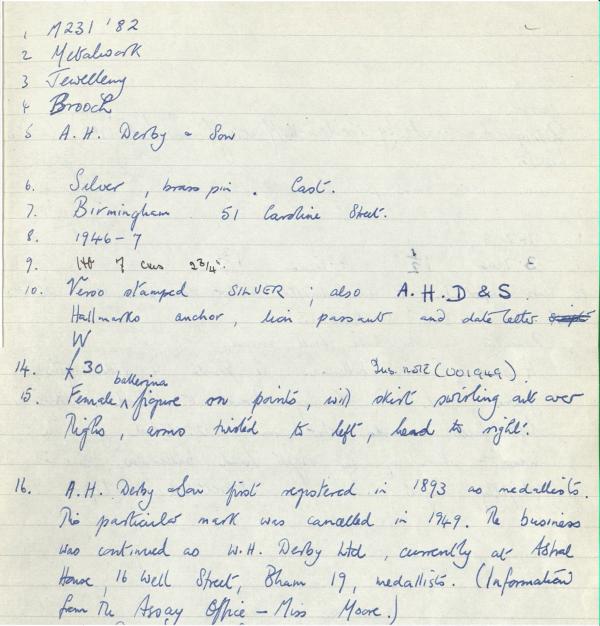 1 M231 '82
2 Metalwork
3 Jewellery
4 Brooch
5 A.H. Derby & Son
6. Silver, brass pin. Cast.
7. Birmingham 51 Caroline Street.
8. 1946-7
9. Ht 7 cms 2 3/4".
10. Verso stamped SILVER; also A.H.D & S.
Hallmarks anchor, lion passant and date letter
W
14. £30 Ins. note (001949).
15. Female ballerina figure on points, with skirt swirling out over
thighs, arms twisted to left, head to right.
16. A.H. Derby & Son first registered in 1893 as medallists.
This particular mark was cancelled in 1949. The business
was continued as W.H. Derby Ltd, currently at Astral
House, 16 Well Street, Bham 19, medallists. (Information
from the Assay Office - Miss Moore.)